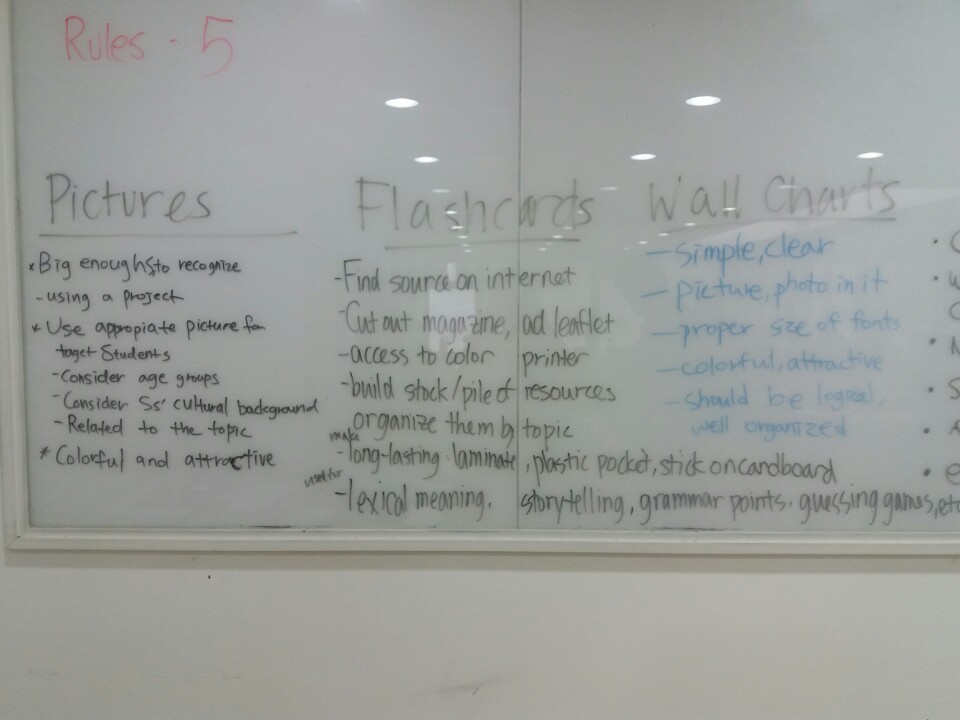 Rules - 5
Pictures
* Big enough to recognize
- using a project
* Use appropiate picture for
taget Students
- Consider age groups
- Consider Ss' cultural background
- Related to the topic
* Colorful and attractive
Flashcards
- Find source on internet
- Cut out magazine, ad leaflet
- access to color printer
- build stock/pile of resources
organize them by topic
make
- long-lasting: laminate, plastic pocket, stick on cardboard
used for
- lexical meaning, storytelling, grammar points, guessing games, etc
Wall Charts
- simple, clear
- picture, photo in it
- proper size of fonts
- colorful, attractive
- should be logical,
well organized